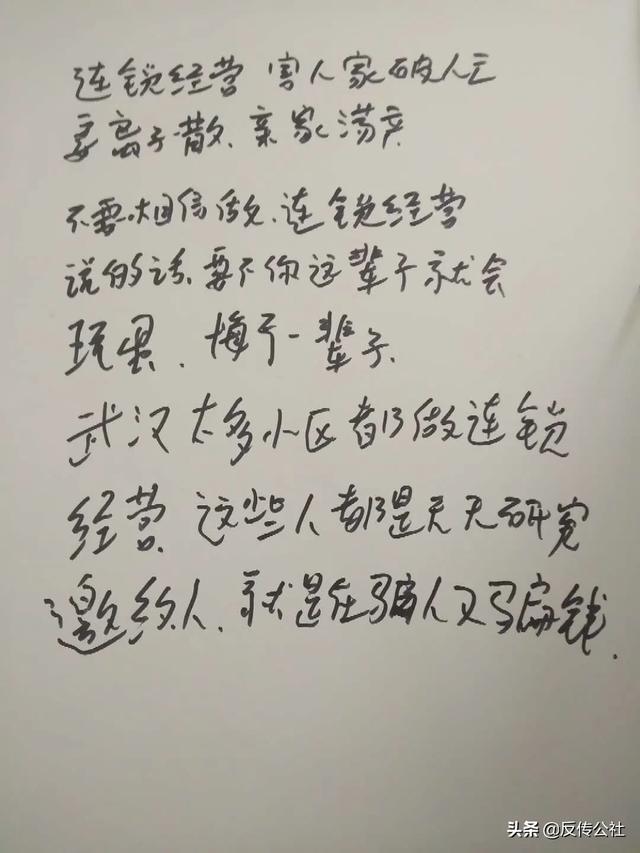 连锁经营 害人家破人亡
妻离子散、亲家荡产
不要相信做、连锁经营
说的话、要不你这辈子就会
玩完、悔于一辈子、
武汉太多小区都做连锁
经营、这些人都是天天研究
邀约人、就是在骗人又骗钱.
头条 @反传公社